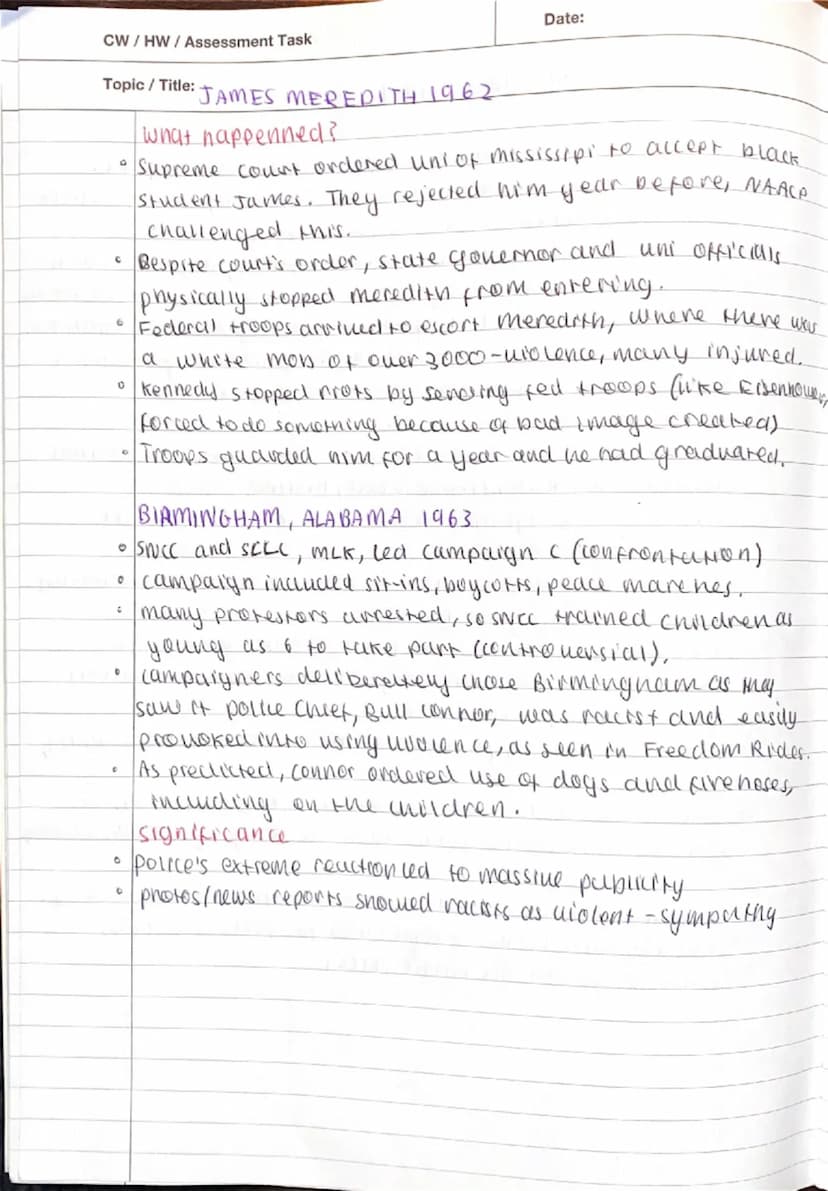 Date:
CW / HW / Assessment Task
Topic / Title: JAMES MEREDITH 1962
What happenned?
Supreme court ordered uni of Mississipi to accept black
student James. They rejected him year before, NAACP
challenged this.
Despite court's order, state governor and uni officials
physically stopped meredith from entering.
Federal troops arrived to escort meredith, where there was
a white mob of over 3000 - violence, many injured.
Kennedy stopped riots by sending fed troops (like Eisenhower,
forced to do something because of bad image created)
Troops guarded him for a year and he had graduated.
BIRMINGHAM, ALABAMA 1963
SNCC and SCLC, MLK, led campaign C (confrontation)
campaign included sit-ins, boycotts, peace marches.
many protestors arrested, so SNCC trained children as
young as 6 to take part (controversial).
campaigners deliberately chose Birmingham as they
saw it police chief, Bull Connor, was racist and easily
provoked into using violence, as seen in Freedom Rides.
As predicted, Connor ordered use of dogs and firehoses,
including on the children.
significance
police's extreme reaction led to massive publicity
photos/news reports showed racists as violent - sympathy